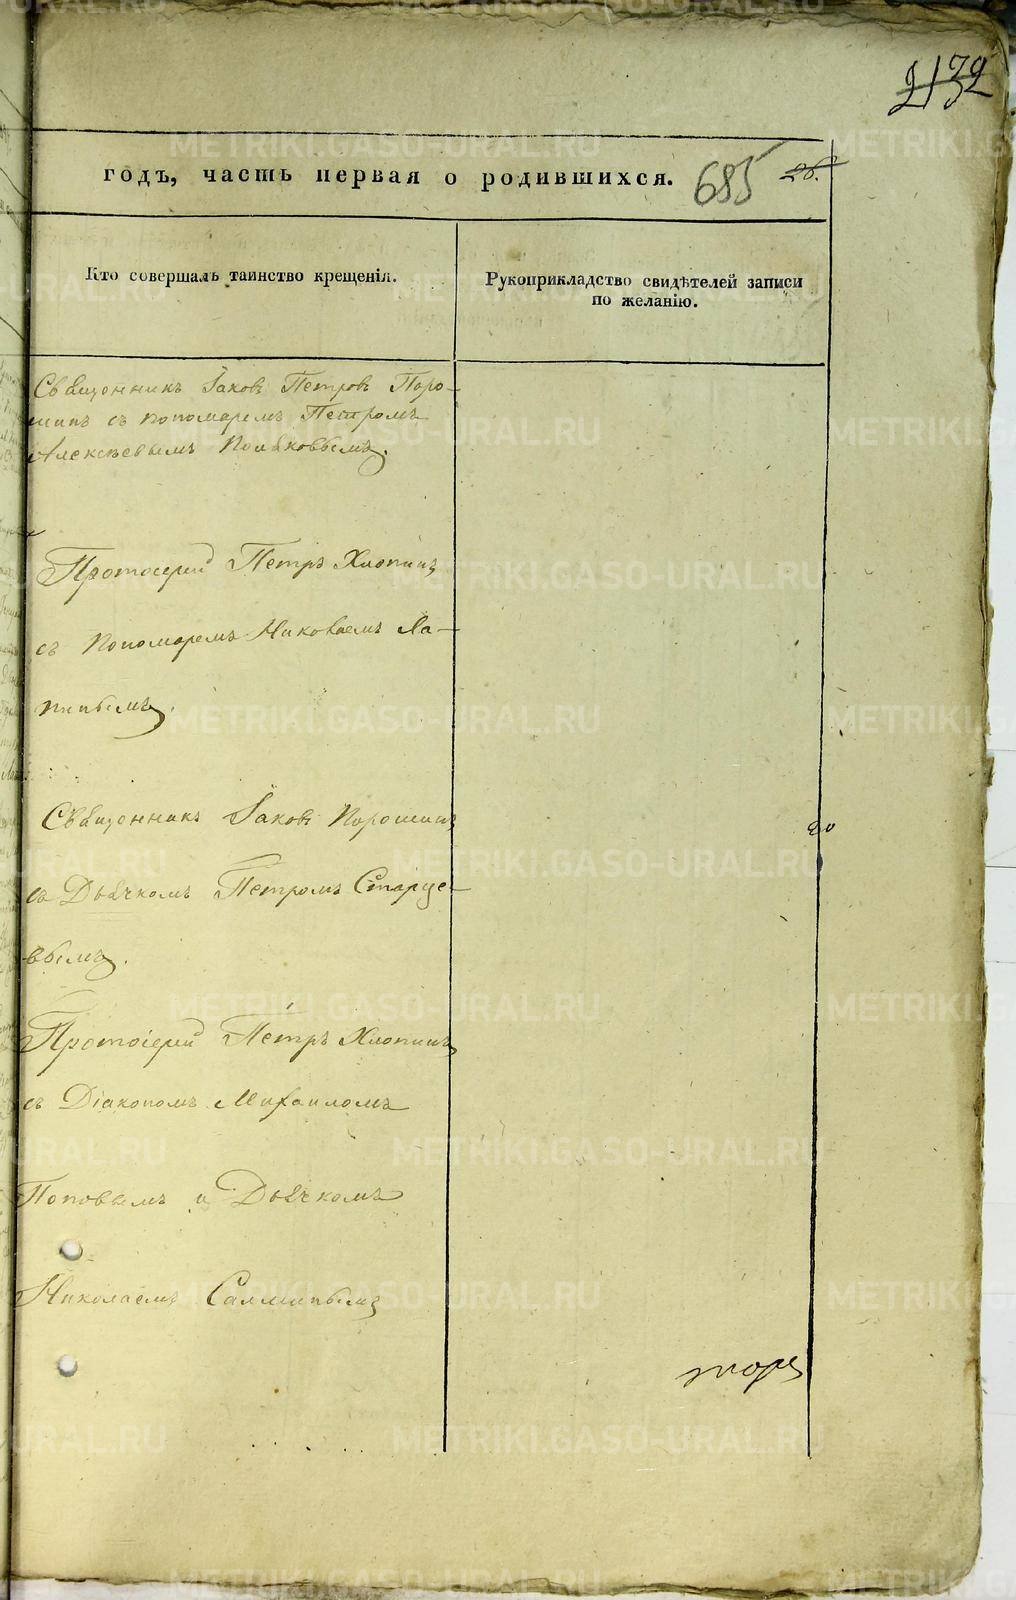 32
годъ, часть первая о родившихся.
685
26.
Кто совершалъ таинство крещенія.
Рукоприкладство свидѣтелей записи
по желанію.
Священникъ Іаковъ Петровъ Поро-
шинъ съ пономаремъ Петромъ
Алексѣевымъ Поляковымъ.
Протоіерей Петръ Хлопинъ
съ Пономаремъ Николаемъ Ла-
Священникъ Іаковъ Порошинъ
съ Дьячкомъ Петромъ Старце-
вымъ.
Протоіерей Петръ Хлопинъ
съ Діакономъ Михаиломъ
Поповымъ и Дьячкомъ
Николаемъ
METRIKI.GASO-URAL.RU